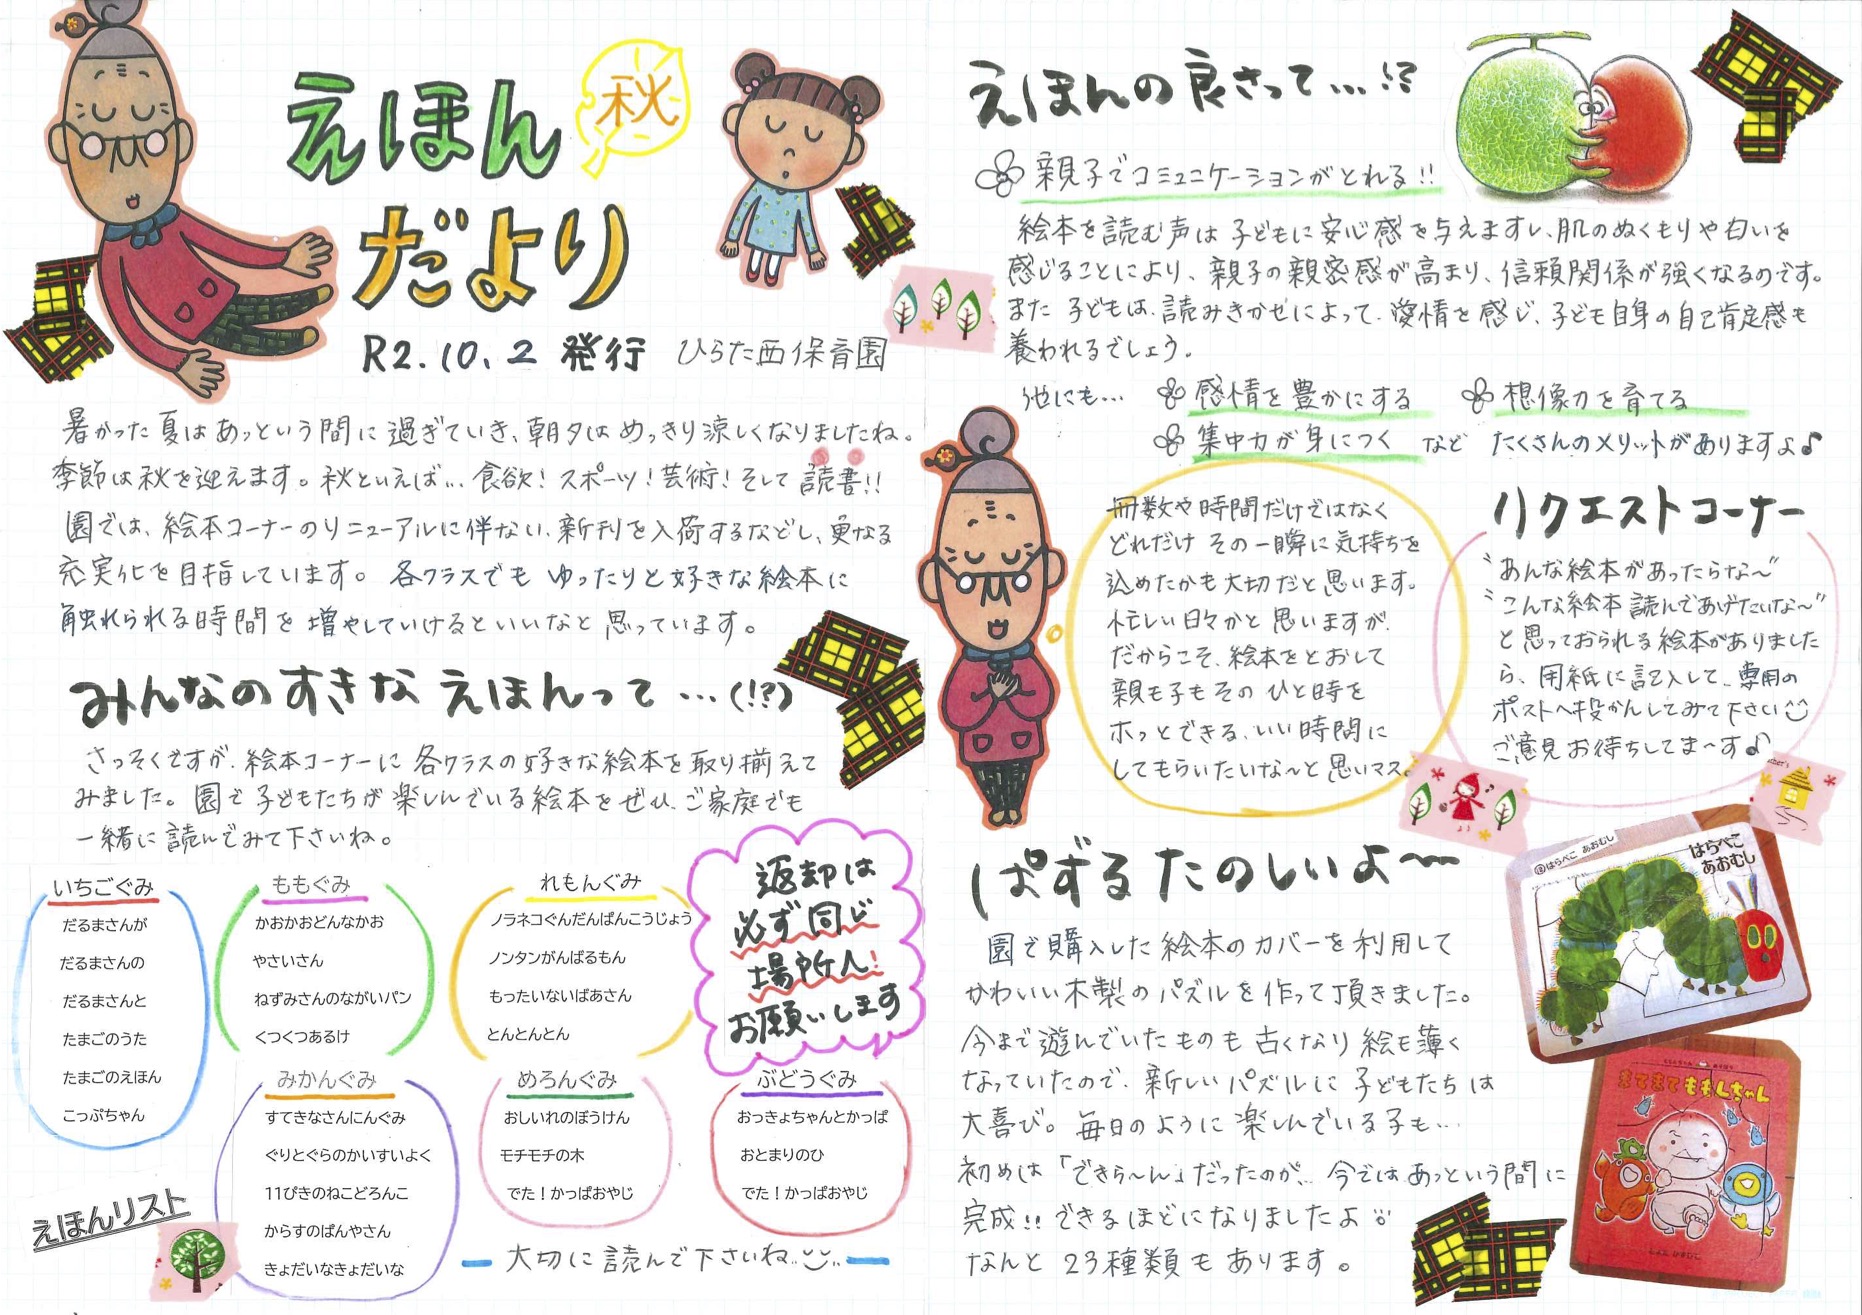 えほん
秋
だより
R2.10.2 発行 ひらた西保育園
暑かった夏はあっという間に過ぎていき、朝夕はめっきり涼しくなりましたね。
季節は秋を迎えます。秋といえば… 食欲！スポーツ！芸術！そして読書!!
園では、絵本コーナーのリニューアルに伴ない、新刊を入荷するなどし、更なる
充実化を目指しています。各クラスでも ゆったりと好きな絵本に
触れられる時間を増やしていけるといいなと思っています。
みんなのすきな えほんって…(!?)
さっそくですが、絵本コーナーに各クラスの好きな絵本を取り揃えて
みました。園で子どもたちが楽しんでいる絵本をぜひ、ご家庭でも
一緒に読んでみて下さいね。
返却は
必ず同じ
場所へ!
お願いします
いちごぐみ
だるまさんが
だるまさんの
だるまさんと
たまごのうた
たまごのえほん
こっぷちゃん
ももぐみ
かおかおどんなかお
やさいさん
ねずみさんのながいパン
くつくつあるけ
れもんぐみ
ノラネコぐんだんぱんこうじょう
ノンタンがんばるもん
もったいないばあさん
とんとんとん
みかんぐみ
すてきなさんにんぐみ
ぐりとぐらのかいすいよく
11ぴきのねこどろんこ
からすのぱんやさん
きょだいなきょだいな
めろんぐみ
おしいれのぼうけん
モチモチの木
でた！かっぱおやじ
ぶどうぐみ
おっきょちゃんとかっぱ
おとまりのひ
でた！かっぱおやじ
えほんリスト
大切に読んで下さいね
えほんの良さって…!?
親子でコミュニケーションがとれる!!
絵本を読む声は子どもに安心感を与えますし、肌のぬくもりや匂いを
感じることにより、親子の親密感が高まり、信頼関係が強くなるのです。
また子どもは、読みきかせによって、愛情を感じ、子ども自身の自己肯定感も
養われるでしょう。
他にも… 感情を豊かにする 想像力を育てる
集中力が身につく など たくさんのメリットがありますよ♪
冊数や時間だけではなく
どれだけ その一瞬に気持ちを
込めたかも大切だと思います。
忙しい日々かと思いますが、
だからこそ、絵本をとおして
親も子もそのひと時を
ホッとできる、いい時間に
してもらいたいな〜と思いマス。
リクエストコーナー
"あんな絵本があったらな〜"
"こんな絵本読んであげたいな〜"
と思っておられる絵本がありました
ら、用紙に記入して、専用の
ポストへ投かんしてみて下さい
ご意見お待ちしてま〜す♪
ぱずるたのしいよ〜
園で購入した絵本のカバーを利用して
かわいい木製のパズルを作って頂きました。
今まで遊んでいたものも古くなり絵も薄く
なっていたので、新しいパズルに子どもたちは
大喜び。毎日のように楽しんでいる子も…
初めは「できら〜ん」だったのが、今ではあっという間に
完成!! できるほどになりましたよ
なんと 23種類もあります。
はらぺこ あおむし
はらぺこ
あおむし
まてまてももんちゃん